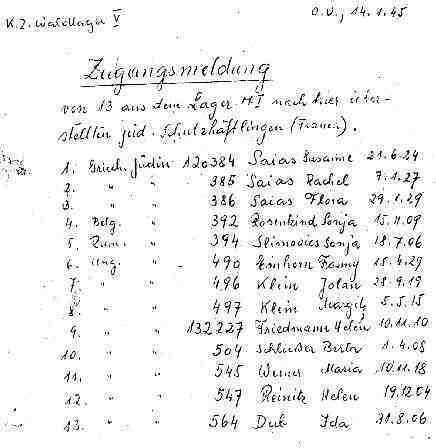 K.Z. Waldlager V
O.U., 14.1.45
Zugangsmeldung
von 13 aus dem Lager MI nach hier über-
stellten jüd. Schutzhäftlingen (Frauen).
1. Griech. Jüdin 120384 Saias Susanne 21.6.24
2. " " 385 Saias Rachel 7.1.27
3. " " 386 Saias Flora 29.1.29
4. Belg. " 392 Rosenkind Sonja 15.11.09
5. Rum. " 394 Slimovics Sonja 18.7.06
6. Ung. " 490 Einhorn Fanny 25.4.29
7. " " 496 Klein Jolan 28.9.19
8. " " 497 Klein Margit 5.5.15
9. " " 132227 Friedmann Helen 10.11.10
10. " " 504 1.4.08
11. " " 545 Werner Maria 10.11.18
12. " " 547 Reinitz Helen 19.12.04
13. " " 564 Dub Ida 31.8.06